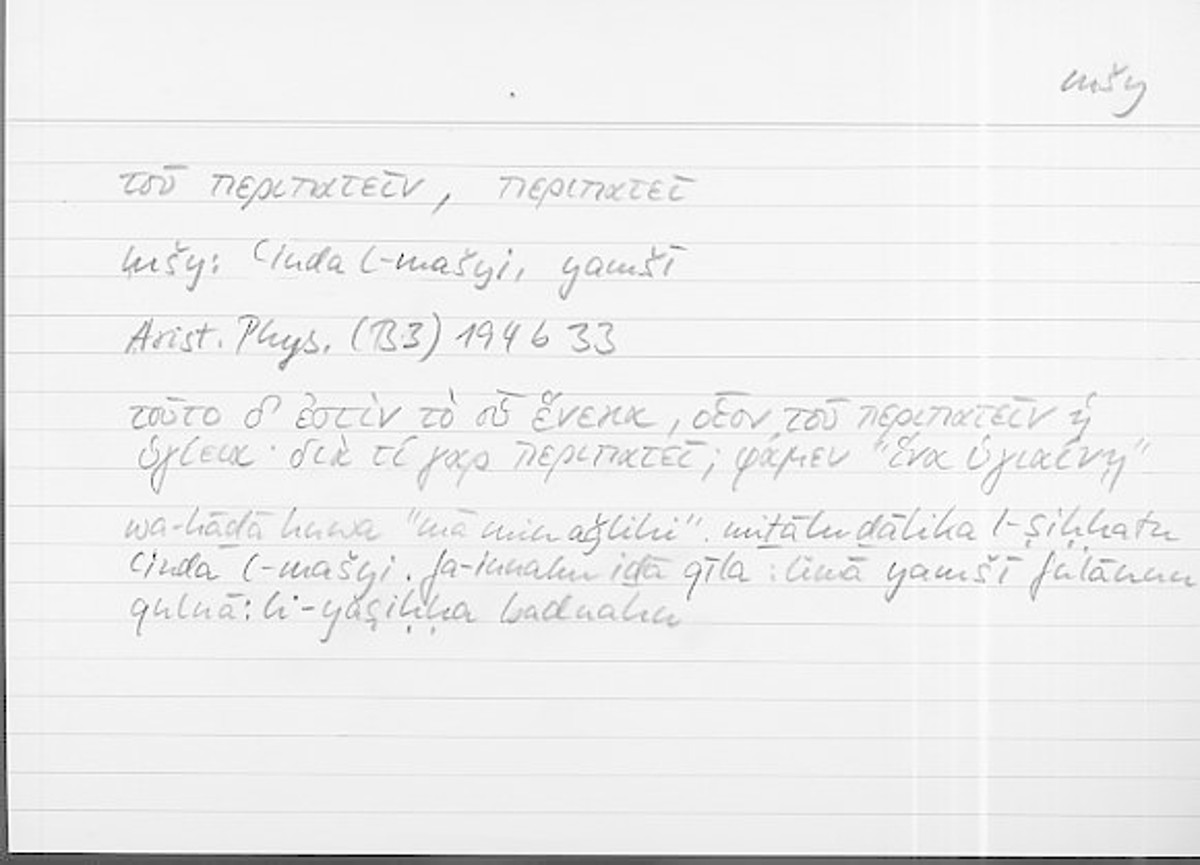 mšy
τοῦ περιπατεῖν, περιπατεῖ
mšy: ʿinda l-mašyi, yamšī
Arist. Phys. (B3) 194 b 33
τοῦτο δ' ἐστὶν τὸ οὗ ἕνεκα, οἷον τοῦ περιπατεῖν ἡ
ὑγίεια· διὰ τί γὰρ περιπατεῖ; φάμεν "ἵνα ὑγιαίνῃ"
wa-hāḏā huwa "mā min aǧlihi". miṯālu ḏālika l-ṣiḥḥatu
ʿinda l-mašyi. fa-innahu iḏā qīla: limā yamšī fulānun
qulnā: li-yaṣiḥḥa badnahu